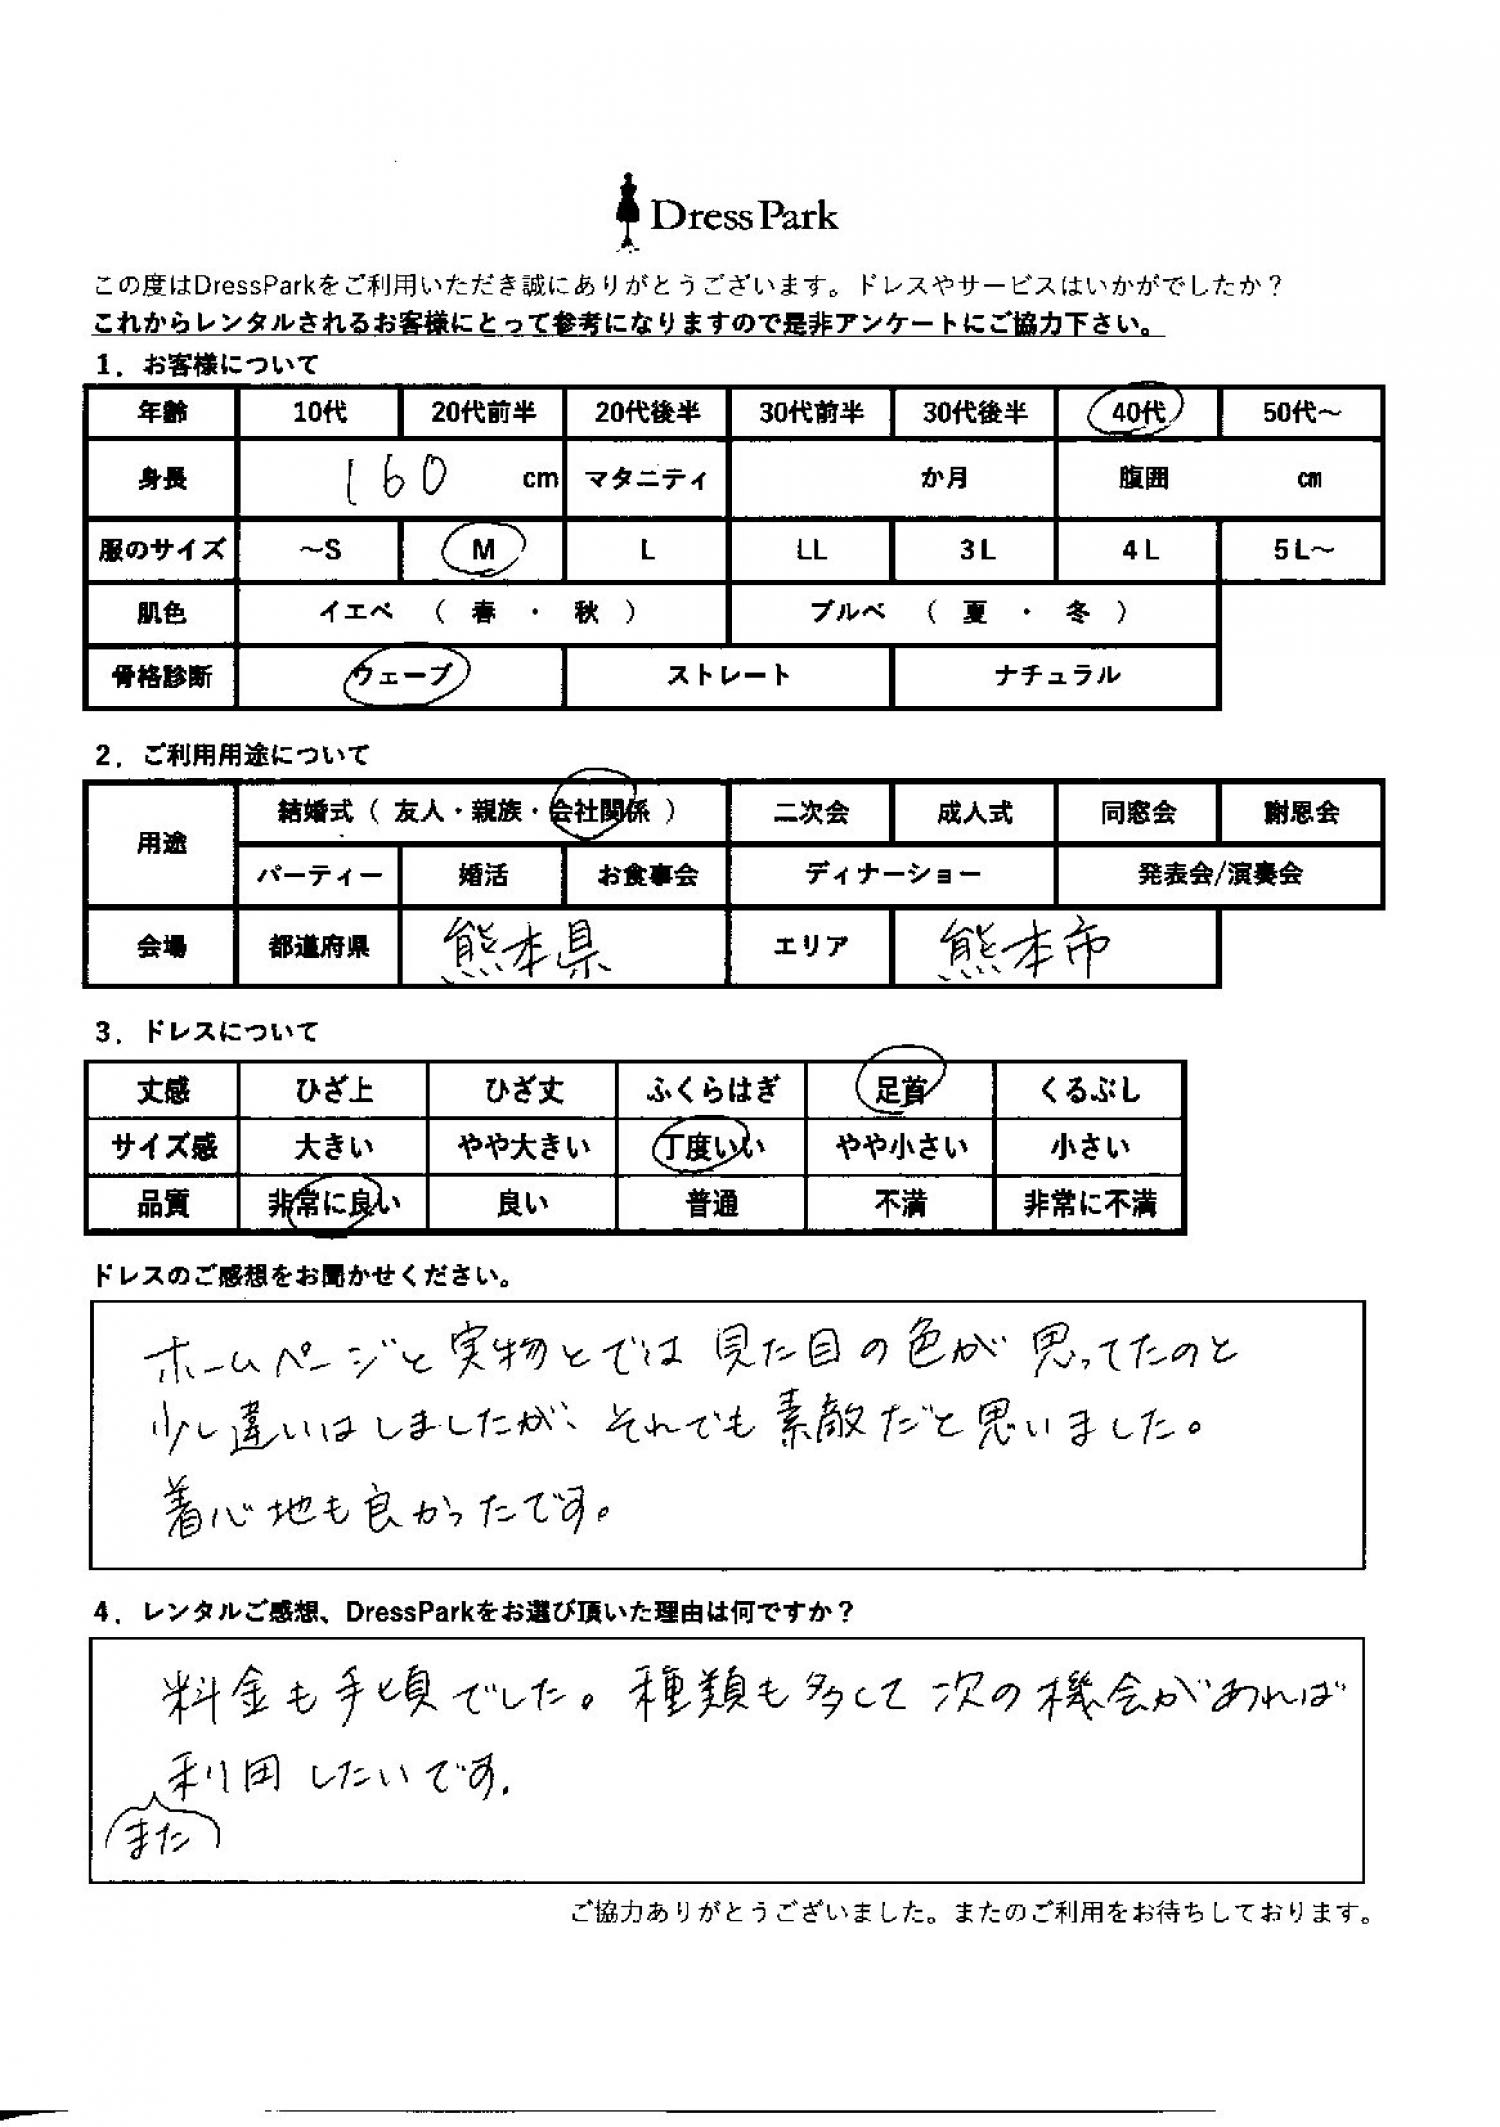 DressPark
この度はDressParkをご利用いただき誠にありがとうございます。ドレスやサービスはいかがでしたか？
これからレンタルされるお客様にとって参考になりますので是非アンケートにご協力下さい。
1．お客様について
年齢 10代 20代前半 20代後半 30代前半 30代後半 40代 50代～
身長 160 cm マタニティ か月 腹囲 ㎝
服のサイズ ～S M L LL 3L 4L 5L～
肌色 イエベ （ 春 ・ 秋 ） ブルベ （ 夏 ・ 冬 ）
骨格診断 ウェーブ ストレート ナチュラル
2．ご利用用途について
用途 結婚式（ 友人・親族・会社関係 ） 二次会 成人式 同窓会 謝恩会
パーティー 婚活 お食事会 ディナーショー 発表会/演奏会
会場 都道府県 熊本県 エリア 熊本市
3．ドレスについて
丈感 ひざ上 ひざ丈 ふくらはぎ 足首 くるぶし
サイズ感 大きい やや大きい 丁度いい やや小さい 小さい
品質 非常に良い 良い 普通 不満 非常に不満
ドレスのご感想をお聞かせください。
ホームページと実物とでは見た目の色が思ってたのと
少し違いはしましたが、それでも素敵だと思いました。
着心地も良かったです。
4．レンタルご感想、DressParkをお選び頂いた理由は何ですか？
料金も手頃でした。種類も多くて次の機会があれば
利用したいです.
また
ご協力ありがとうございました。またのご利用をお待ちしております。